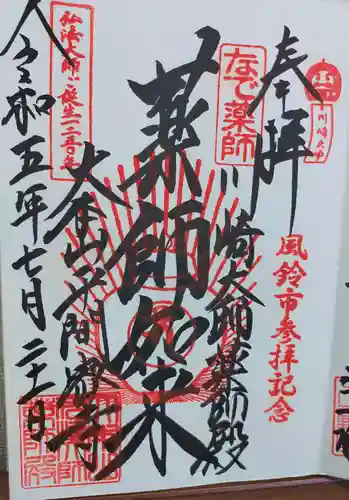 奉拝
川崎大師
風鈴市参拝記念
なで薬師
川崎大師薬師殿
薬師如来
大本山平間寺
弘法大師ご誕生一二五〇年
令和五年七月二十一日